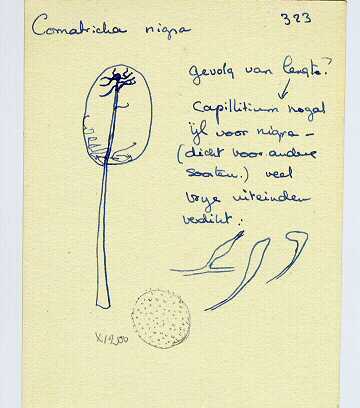 Comatricha nigra
323
gevolg van lengte?
Capillitium nogal
ijl voor nigra -
(dicht voor andere
soorten.) veel
vrije uiteinden
verdikt:
X1200